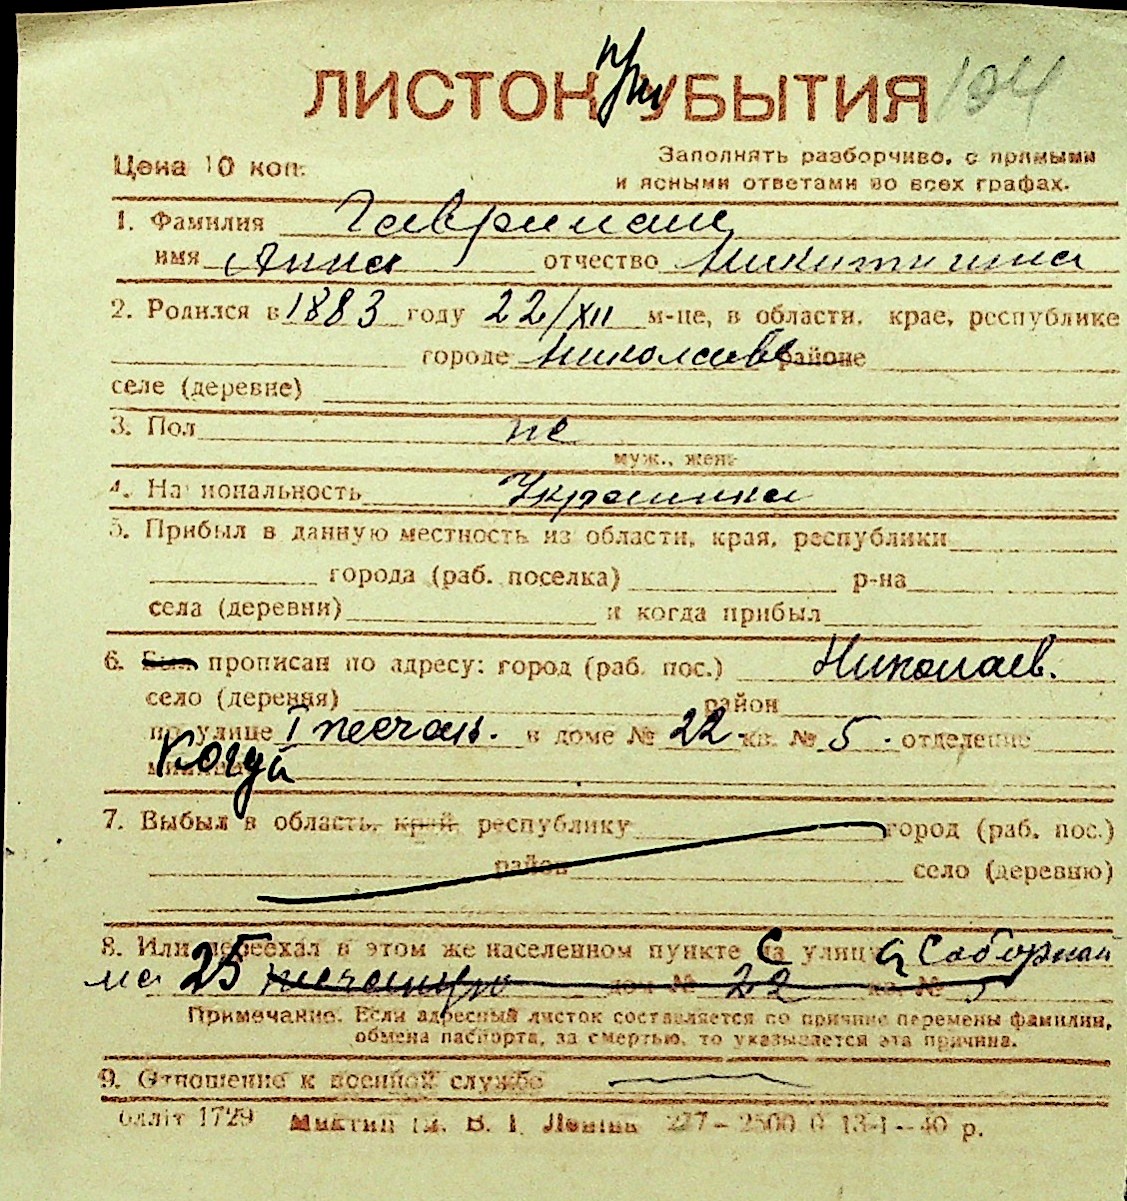 ЛИСТОК при УБЫТИЯ 194
Цена 10 коп.
Заполнять разборчиво, с прямыми
и ясными ответами во всех графах.
1. Фамилия Гаврилаш
имя Анна отчество Никитична
2. Родился в 1883 году 22/XII м-це, в области, крае, республике
городе Николаеве районе
селе (деревне)
3. Пол же
муж., жен.
4. Национальность Украинка
5. Прибыл в данную местность из области, края, республики
города (раб. поселка) р-на
села (деревни) и когда прибыл
6. Был прописан по адресу: город (раб. пос.) Николаев.
село (деревня) район
по улице I песчан. в доме № 22. кв. № 5. отделение
милиции
7. Выбыл в область, край, республику город (раб. пос.)
район село (деревню)
8. Или переехал в этом же населенном пункте с на улицу Соборная
на 25 песчаную дом № 22 кв. №
Примечание. Если адресный листок составляется по причине перемены фамилии,
обмена паспорта, за смертью, то указывается эта причина.
9. Отношение к военной службе
Облліт 1729 Миктип ім. В. І. Леніна 277–2500 0 13-I–40 р.